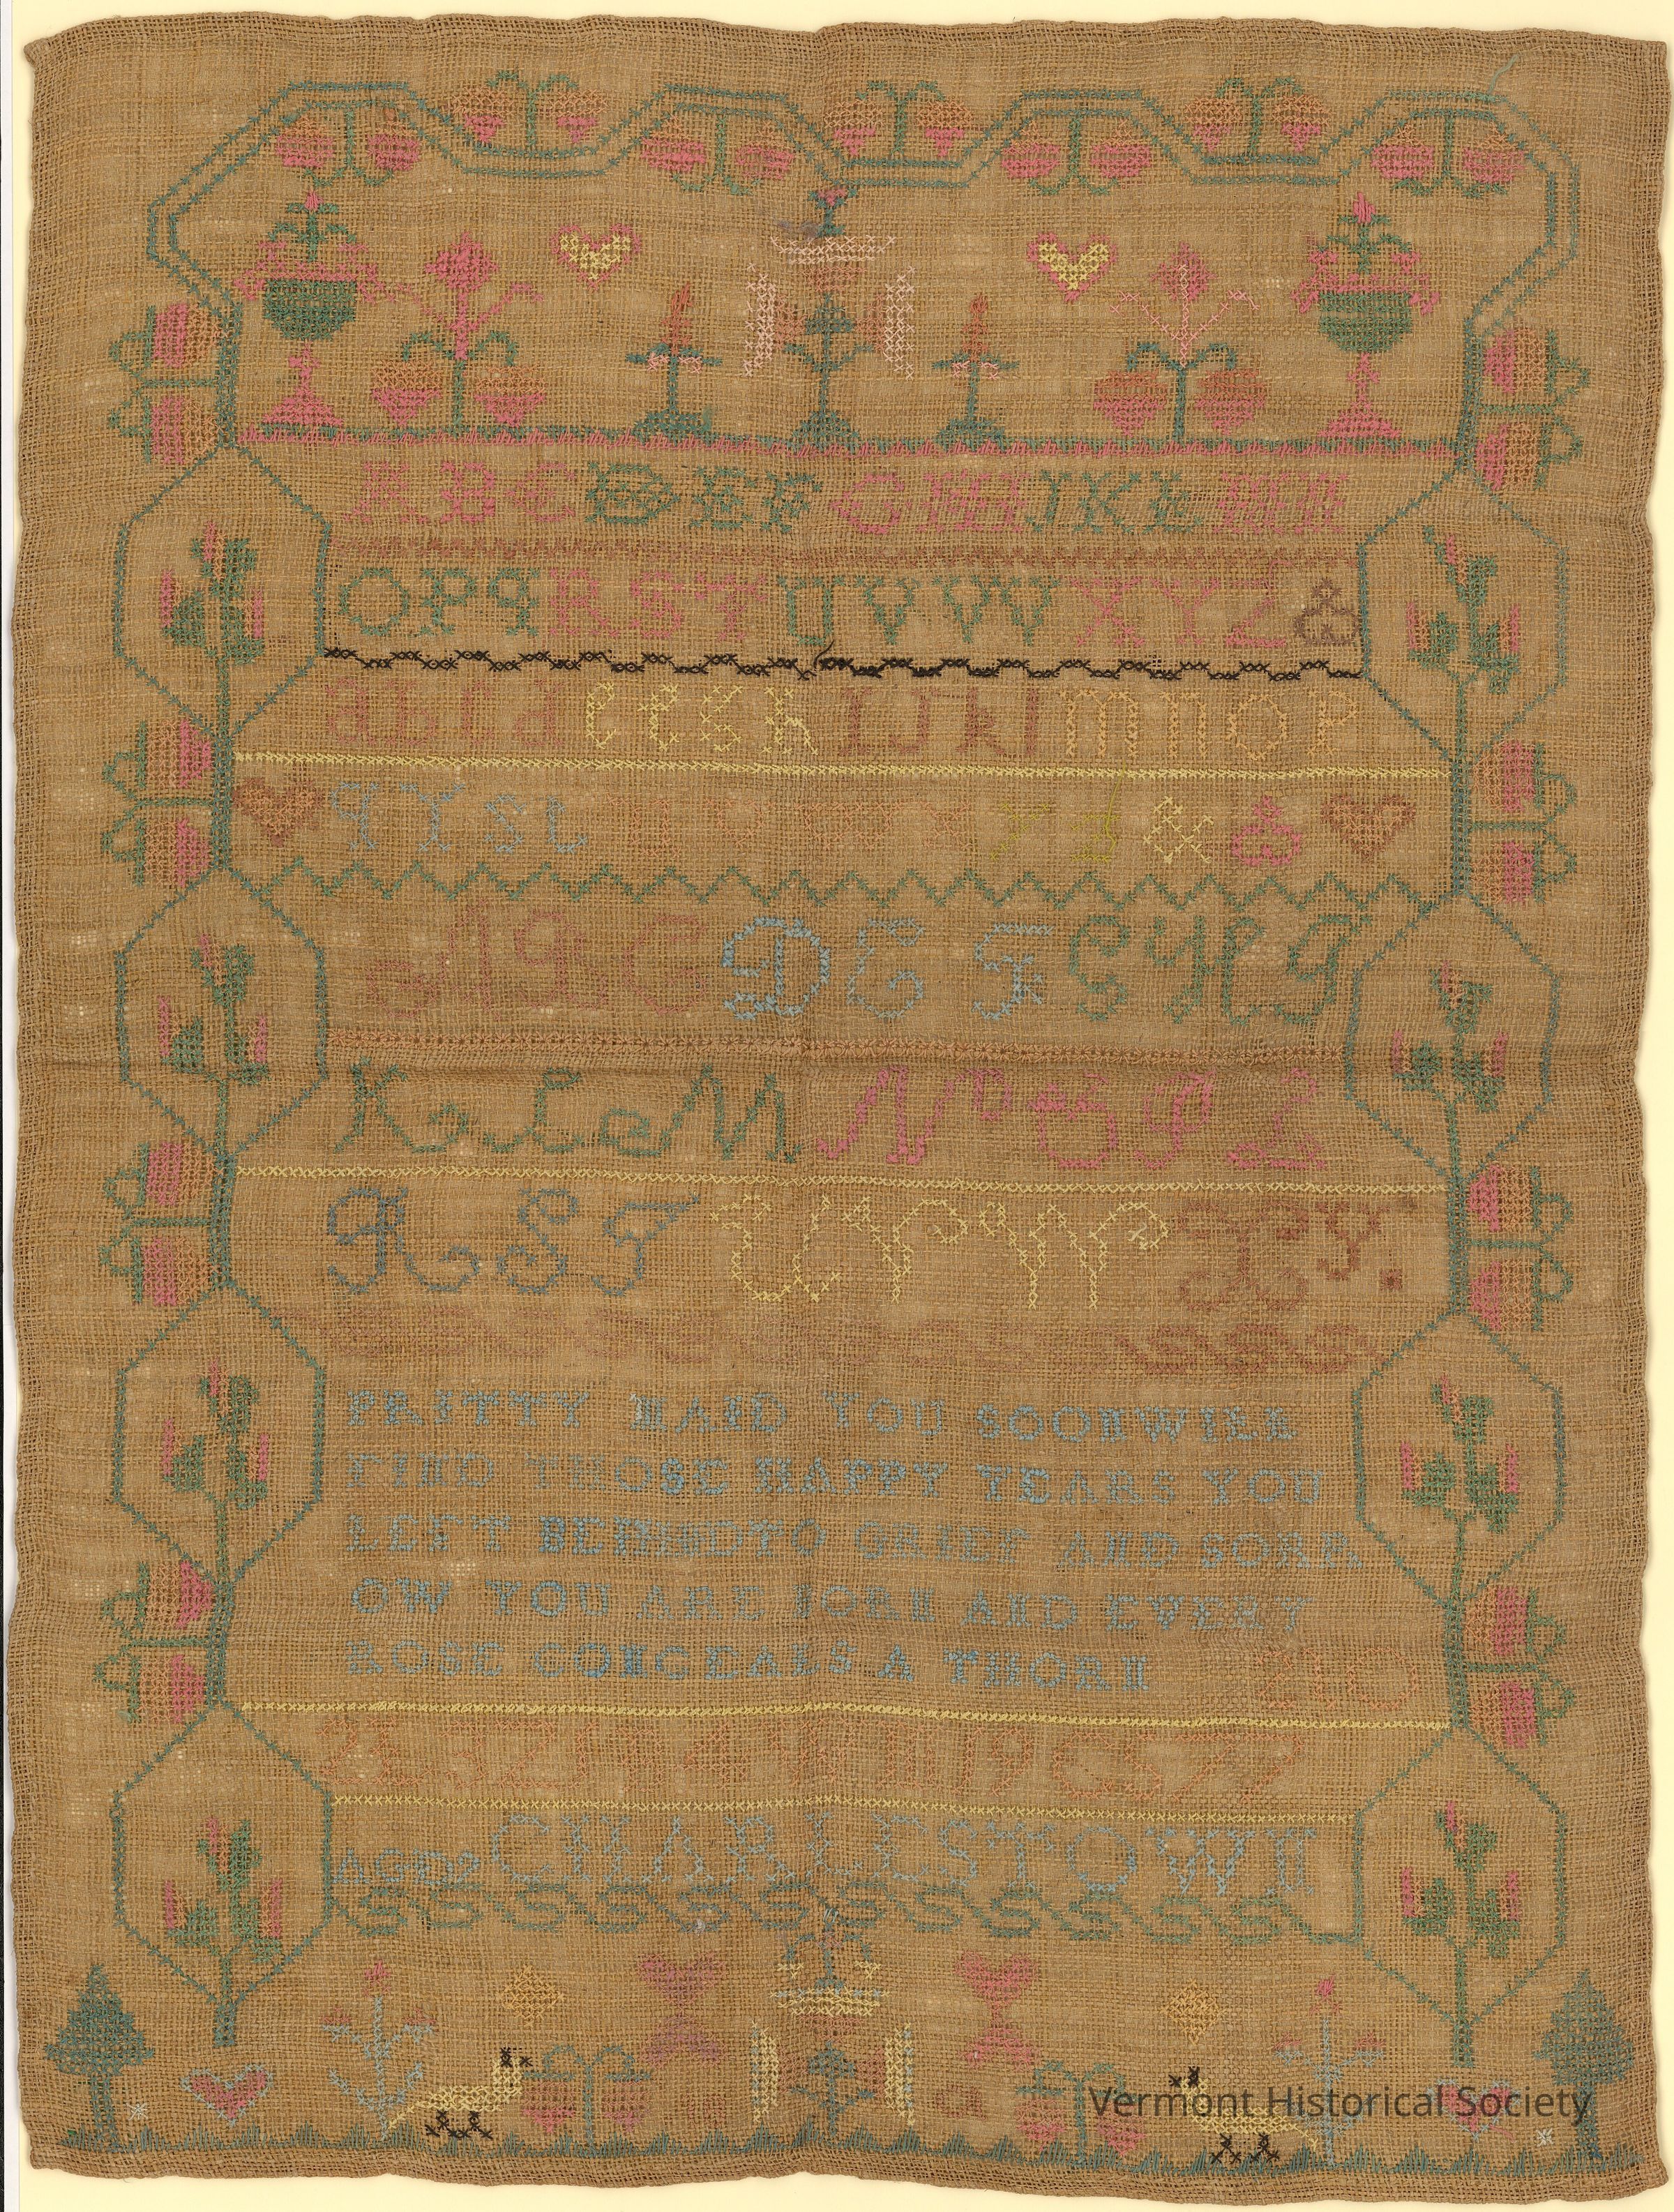 A B C D E F G H I J K L M N
O P Q R S T U V W X Y Z &
a b c d e f g h I J k l m n o p
q r s t u v w x y z & &
A B C D E F G H I J
K L M N O P Q
R S T U V W X Y
PRITTY MAID YOU SOON WILL
FIND THOSE HAPPY YEARS YOU
LEFT BEHIND TO GRIEF AND SORR
OW YOU ARE BORN AND EVERY
ROSE CONCEALS A THORN
AGED CHARLESTOWN
Vermont Historical Society